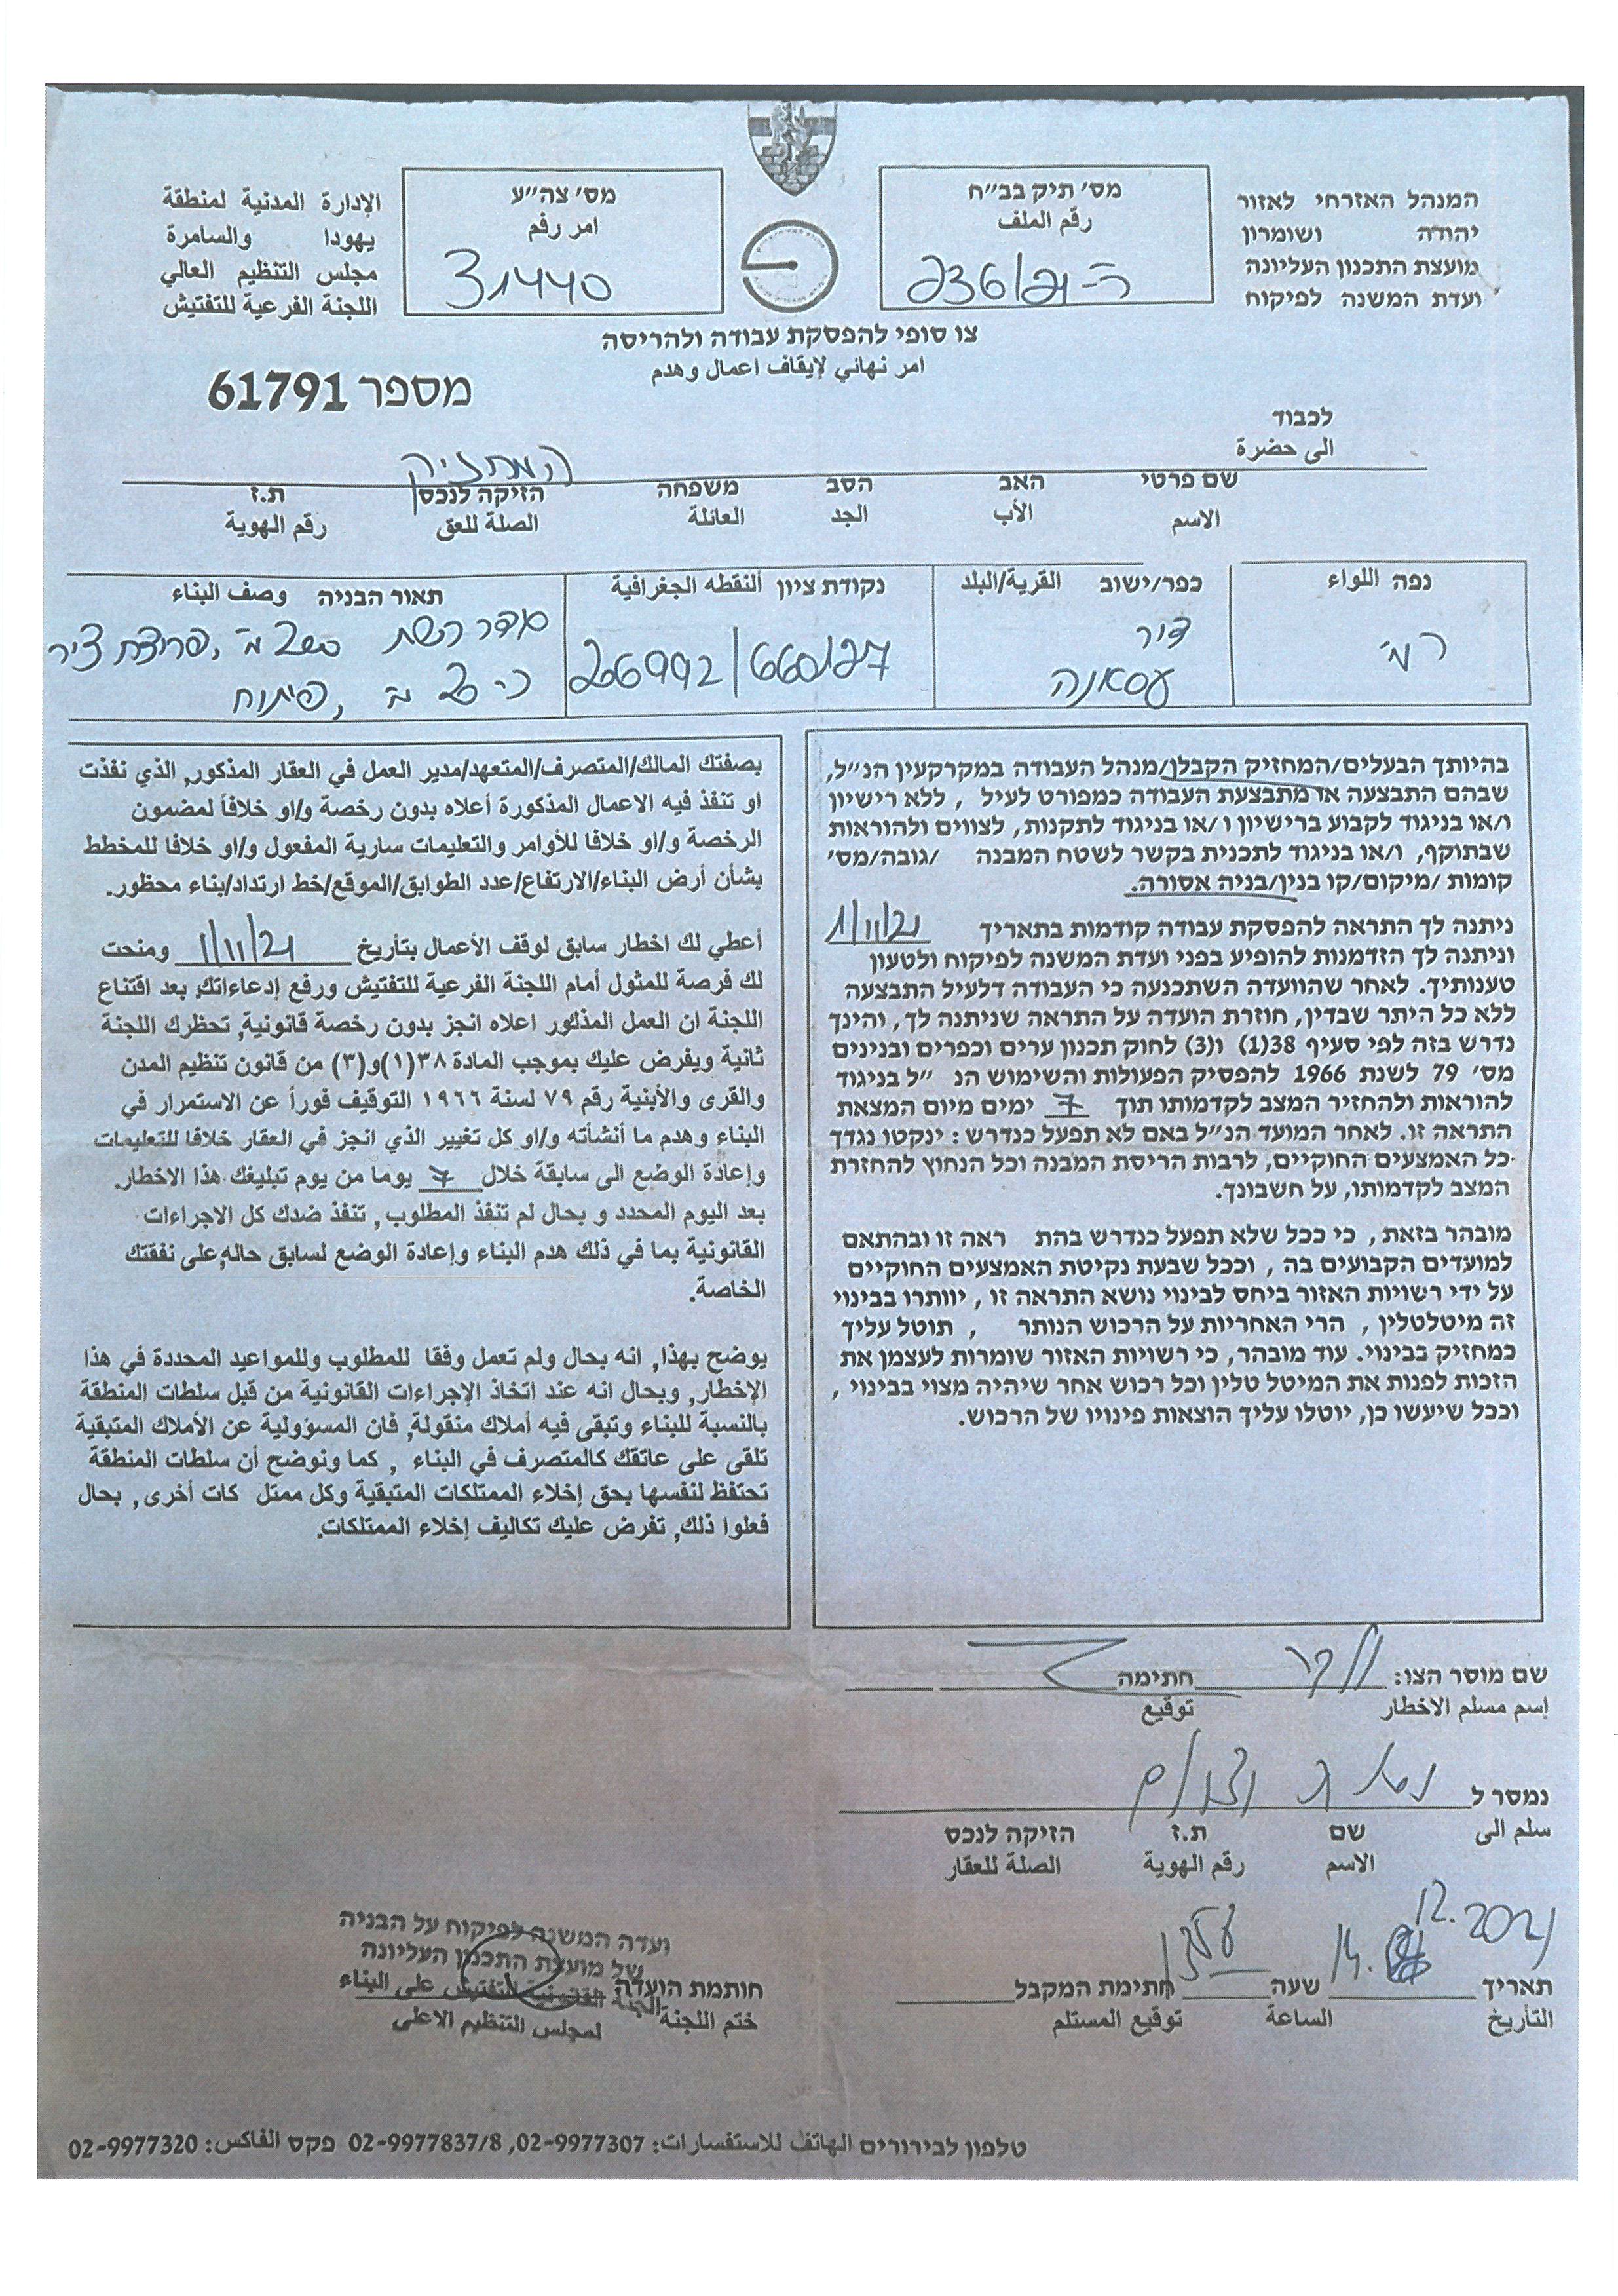 המנהל האזרחי לאזור
יהודה ושומרון
מועצת התכנון העליונה
ועדת המשנה לפיקוח
מס׳ תיק בב״ח
رقم الملف
ה-236/21
מס׳ צה״ע
امر رقم
31440
الإدارة المدنية لمنطقة
يهودا والسامرة
مجلس التنظيم العالي
اللجنة الفرعية للتفتيش
צו סופי להפסקת עבודה ולהריסה
امر نهائي لإيقاف اعمال وهدم
מספר 61791
לכבוד
الى حضرة
המחזיק
שם פרטי האב הסב משפחה הזיקה לנכס ת.ז
الاسم الأب الجد العائلة الصلة للعق رقم الهوية
נפה اللواء
כפר/ישוב القرية/البلد
דיר
עסאנה
נקודת ציון ألنقطه الجغرافية
26992/660127
תאור הבניה وصف البناء
מ, פריצת ציר
מ, פיתוח
בהיותך הבעלים/המחזיק הקבלן/מנהל העבודה במקרקעין הנ״ל,
שבהם התבצעה או מתבצעת העבודה כמפורט לעיל , ללא רישיון
ו/או בניגוד לקבוע ברישיון ו/או בניגוד לתקנות, לצווים ולהוראות
שבתוקף, ו/או בניגוד לתכנית בקשר לשטח המבנה /גובה/מס׳
קומות /מיקום/קו בנין/בניה אסורה.
ניתנה לך התראה להפסקת עבודה קודמות בתאריך 1/11/21
וניתנה לך הזדמנות להופיע בפני ועדת המשנה לפיקוח ולטעון
טענותיך. לאחר שהוועדה השתכנעה כי העבודה דלעיל התבצעה
ללא כל היתר שבדין, חוזרת הועדה על התראה שניתנה לך, והינך
נדרש בזה לפי סעיף 38(1) ו(3) לחוק תכנון ערים וכפרים ובנינים
מס׳ 79 לשנת 1966 להפסיק הפעולות והשימוש הנ ״ל בניגוד
להוראות ולהחזיר המצב לקדמותו תוך 7 ימים מיום המצאת
התראה זו. לאחר המועד הנ״ל באם לא תפעל כנדרש : ינקטו נגדך
כל האמצעים החוקיים, לרבות הריסת המבנה וכל הנחוץ להחזרת
המצב לקדמותו, על חשבונך.
מובהר בזאת, כי ככל שלא תפעל כנדרש בהת ראה זו ובהתאם
למועדים הקבועים בה , וככל שבעת נקיטת האמצעים החוקיים
על ידי רשויות האזור ביחס לבינוי נושא התראה זו , יוותרו בבינוי
זה מיטלטלין , הרי האחריות על הרכוש הנותר , תוטל עליך
כמחזיק בבינוי. עוד מובהר, כי רשויות האזור שומרות לעצמן את
הזכות לפנות את המיטל טלין וכל רכוש אחר שיהיה מצוי בבינוי ,
וככל שיעשו כן, יוטלו עליך הוצאות פינויו של הרכוש.
بصفتك المالك/المتصرف/المتعهد/مدير العمل في العقار المذكور, الذي نفذت
او تنفذ فيه الاعمال المذكورة أعلاه بدون رخصة و/او خلافاً لمضمون
الرخصة و/او خلافا للأوامر والتعليمات سارية المفعول و/او خلافا للمخطط
بشأن أرض البناء/الارتفاع/عدد الطوابق/الموقع/خط ارتداد/بناء محظور.
أعطي لك اخطار سابق لوقف الأعمال بتأريخ 1/11/21 ومنحت
لك فرصة للمثول أمام اللجنة الفرعية للتفتيش ورفع إدعاءاتك, بعد اقتناع
اللجنة ان العمل المذكور اعلاه انجز بدون رخصة قانونية, تحظرك اللجنة
ثانية ويفرض عليك بموجب المادة ٣٨(١)و(٣) من قانون تنظيم المدن
والقرى والأبنية رقم ٧٩ لسنة ١٩٦٦ التوقيف فوراً عن الاستمرار في
البناء وهدم ما أنشأته و/او كل تغيير الذي انجز في العقار خلافا للتعليمات
وإعادة الوضع الى سابقة خلال 7 يوما من يوم تبليغك هذا الاخطار.
بعد اليوم المحدد و بحال لم تنفذ المطلوب, تنفذ ضدك كل الاجراءات
القانونية بما في ذلك هدم البناء وإعادة الوضع لسابق حاله,على نفقتك
الخاصة.
يوضح بهذا, انه بحال ولم تعمل وفقا للمطلوب وللمواعيد المحددة في هذا
الإخطار, وبحال انه عند اتخاذ الإجراءات القانونية من قبل سلطات المنطقة
بالنسبة للبناء وتبقى فيه أملاك منقولة, فان المسؤولية عن الأملاك المتبقية
تلقى على عاتقك كالمتصرف في البناء , كما ونوضح أن سلطات المنطقة
تحتفظ لنفسها بحق إخلاء الممتلكات المتبقية وكل ممتل كات أخرى, بحال
فعلوا ذلك, تفرض عليك تكاليف إخلاء الممتلكات.
שם מוסר הצו: חתימה
إسم مسلم الاخطار توقيع
נמסר ל
سلم الى
שם ת.ז הזיקה לנכס
الاسم رقم الهوية الصلة للعقار
12.2021
תאריך 14. שעה חתימת המקבל
التأريخ الساعة توقيع المستلم
ועדה המשנה לפיקוח על הבניה
של מועצת התכנון העליונה
חותמת הועדה
ختم اللجنة
اللجنة القانونية للتفتيش على البناء
لمجلس التنظيم الاعلى
טלפון לבירורים الهاتف للاستفسارات: 02-9977307, 02-9977837/8 פקס الفاكس: 02-9977320